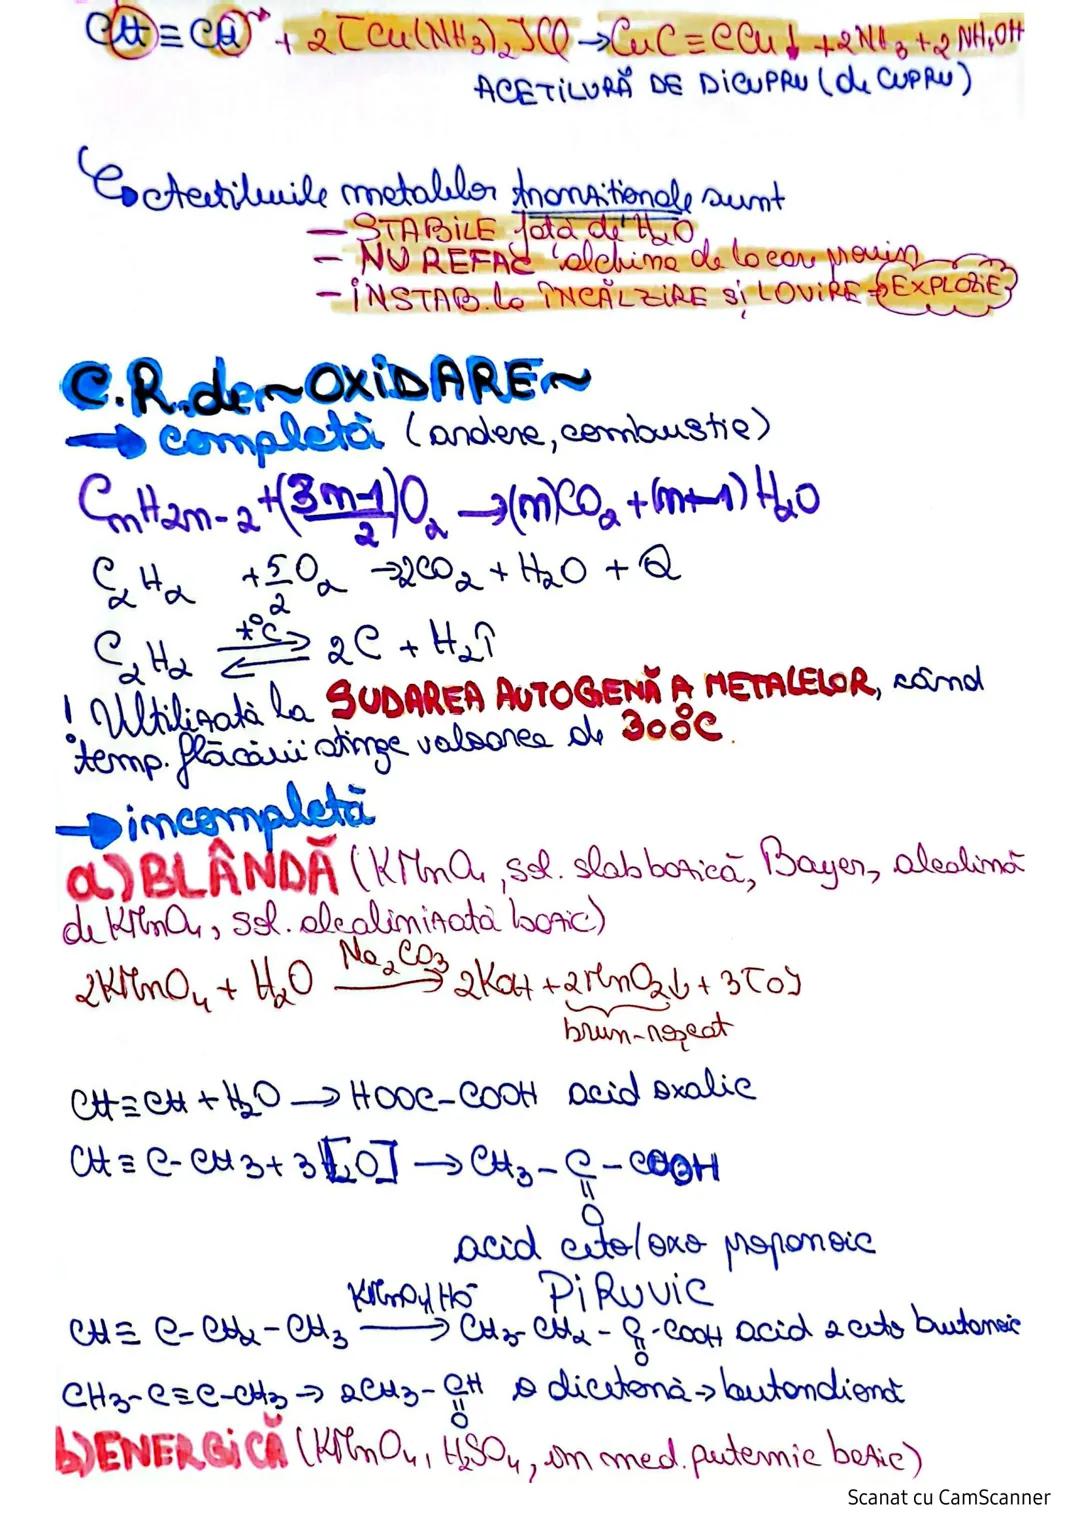 CH≡CH + 2[Cu(NH3)2]Cl → CuC≡CCu↓ + 2NH3 + 2NH4OH
ACETILURĂ DE DICUPRU (de CUPRU)
Acetilurile metalelor tranzitionale sunt
— STABILE fată de H2O
— NU REFAC alchina de la care provin
— INSTAB. la ÎNCĂLZIRE și LOVIRE → EXPLOZIE
C.R.de ~OXIDARE~
→ completă (ardere, combustie)
CnH2n-2 + (3n-1)/2 O2 → (n)CO2 + (n-1) H2O
C2H2 + 5/2 O2 → 2CO2 + H2O + Q
C2H2 ⇌ t°C 2C + H2↑
! Utilizată la SUDAREA AUTOGENĂ A METALELOR, când
temp. flăcării atinge valoarea de 300°C.
→ incompletă
a) BLÂNDĂ (KMnO4, sol. slab bazică, Bayer, alcalină
de KMnO4, sol. alcalinizată bazic)
2KMnO4 + H2O —Na2CO3→ 2KOH + 2MnO2↓ + 3[O]
brun-roșcat
CH≡CH + H2O → HOOC-COOH acid oxalic
CH≡C-CH3 + 3[O] → CH3-C-COOH
||
O
acid ceto/oxo propanoic
PiRuvic
CH≡C-CH2-CH3 —KMnO4/HO⁻→ CH3-CH2-C-COOH acid 2 ceto butanoic
O
CH3-C≡C-CH3 → 2CH3-CH o dicetonă → butandionă
||
O
b) ENERGICĂ (KMnO4, H2SO4, în med. puternic bazic)
Scanat cu CamScanner